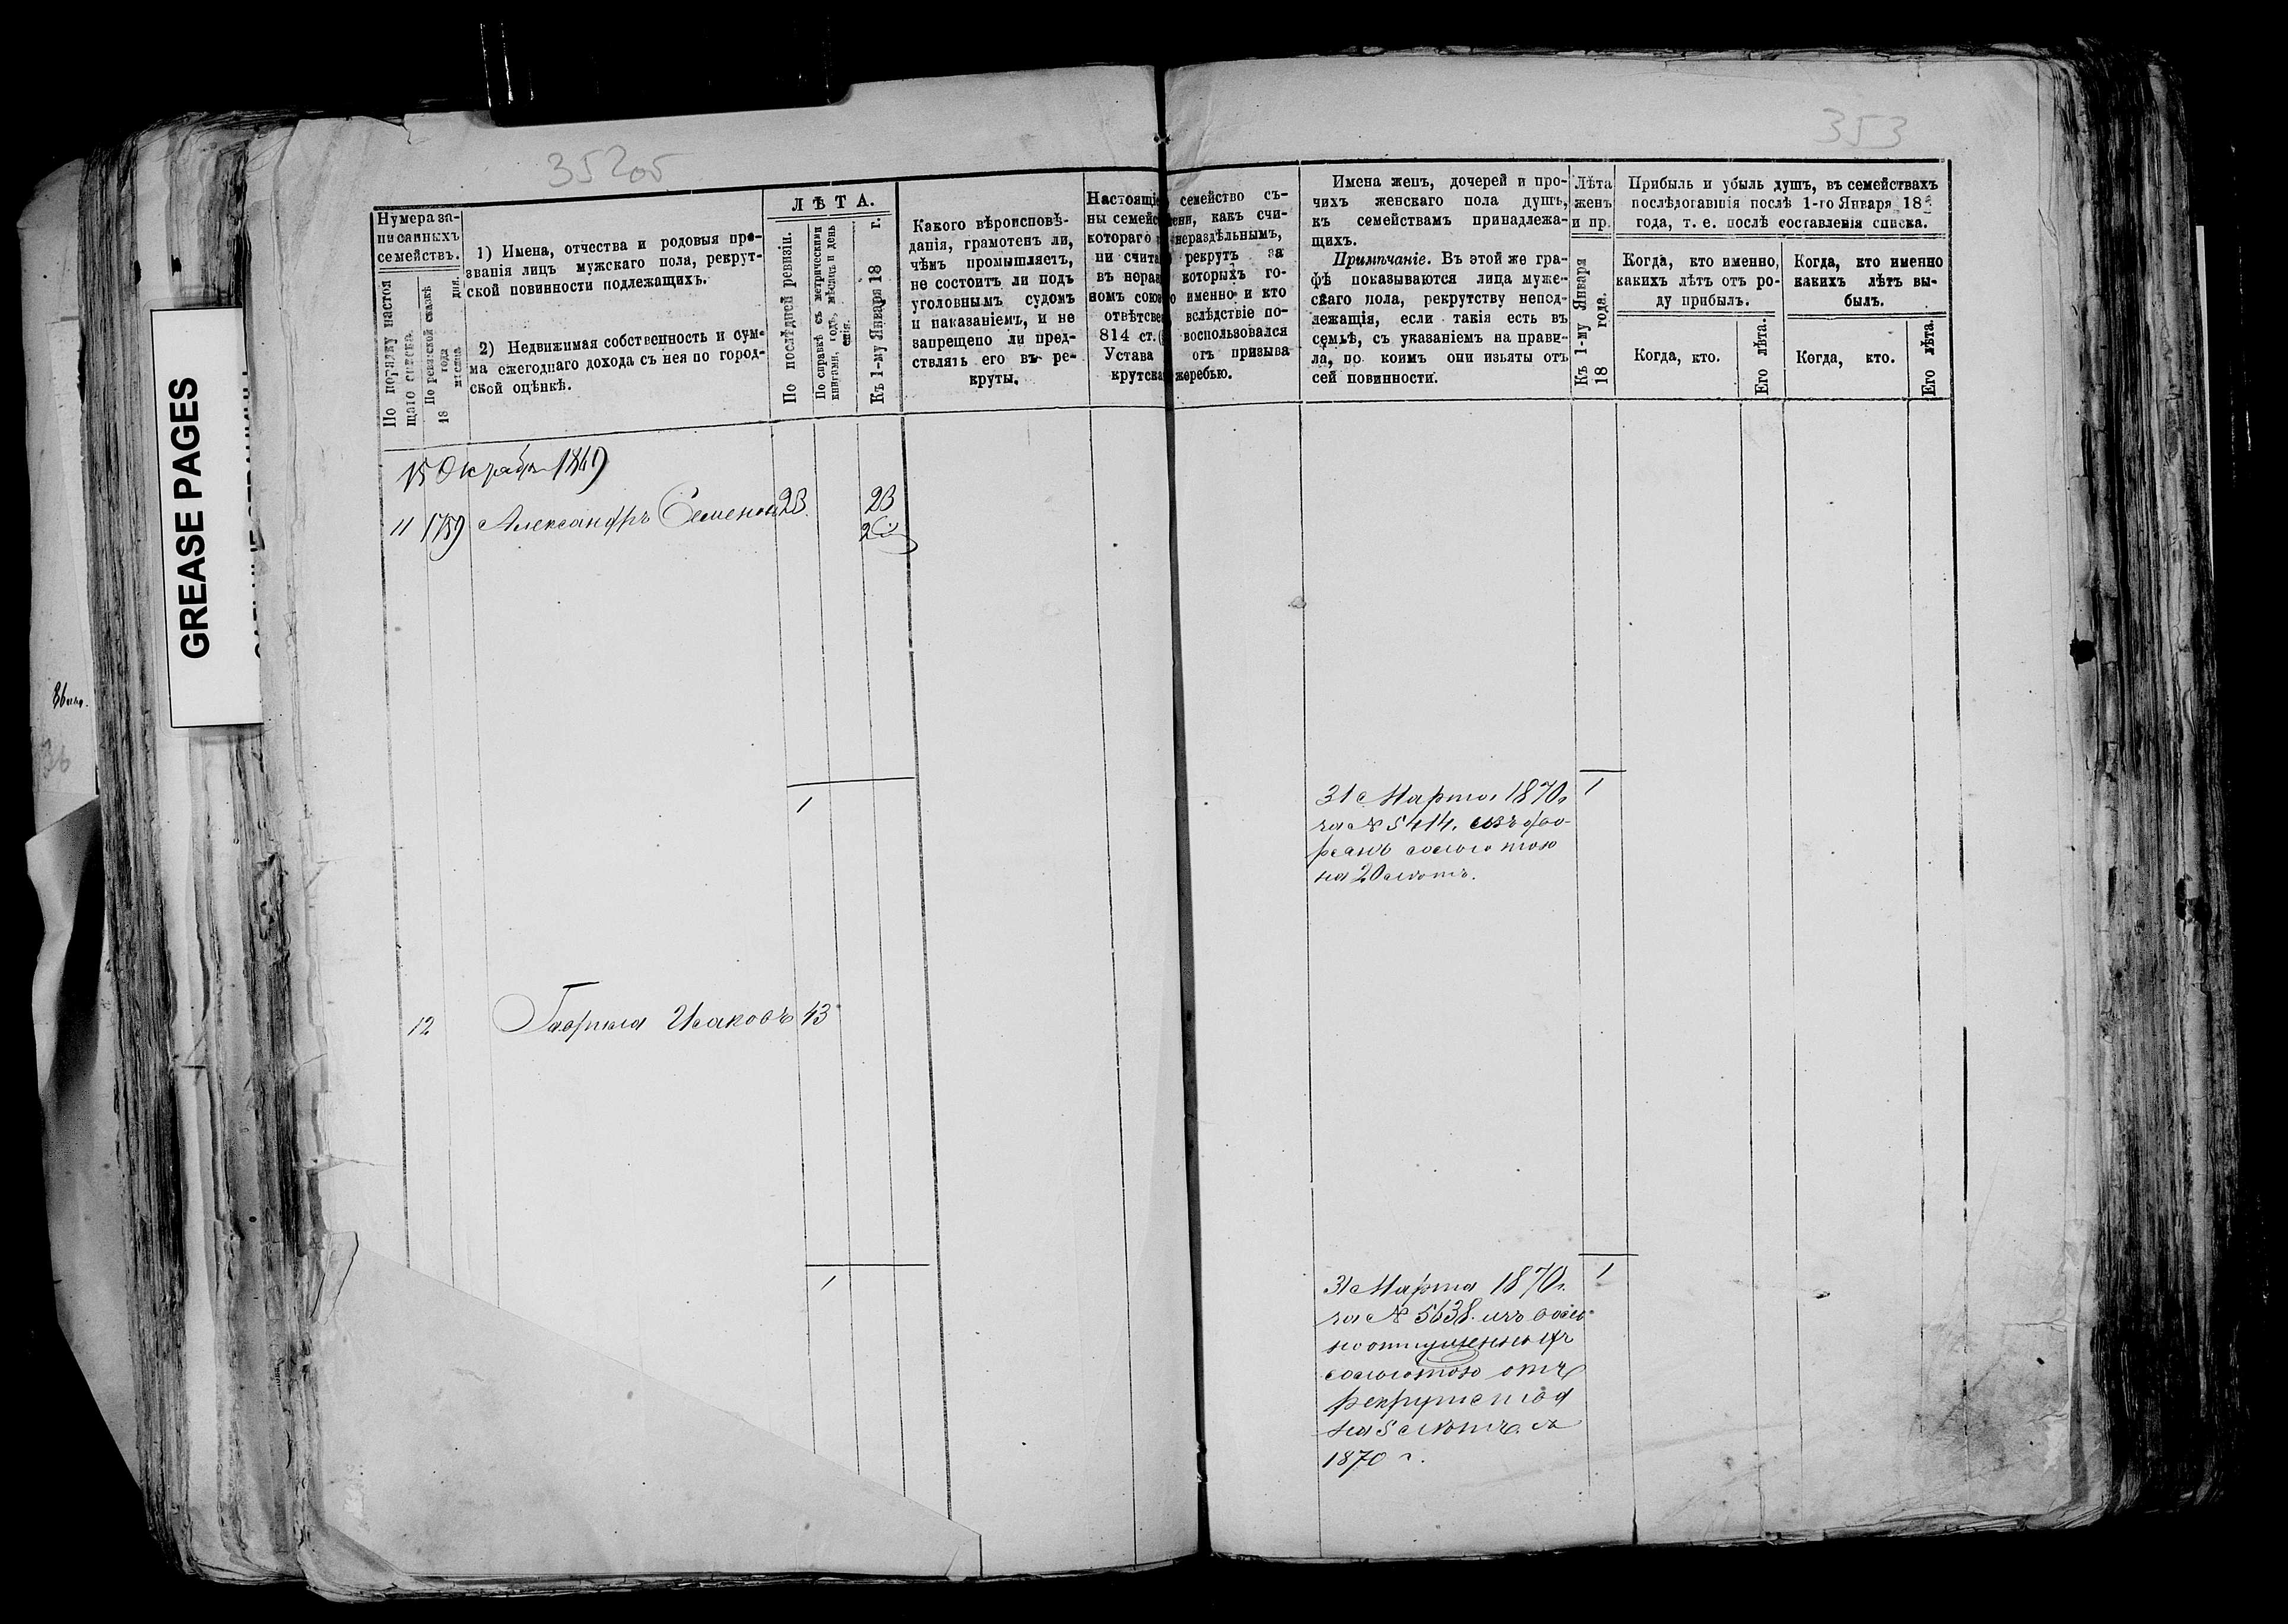 352об
353
GREASE PAGES
Нумера за-
писанныхъ
семействъ.
По порядку настоя
щаго списка.
По ревизской сказкѣ
18 года
мѣсяца дня.
1) Имена, отчества и родовыя про-
званія лицъ мужскаго пола, рекрут-
ской повинности подлежащихъ.
2) Недвижимая собственность и сум-
ма ежегоднаго дохода съ нея по город-
ской оцѣнкѣ.
ЛѢТА.
По послѣдней ревизіи.
По справкѣ съ метрическими
книгами, годъ, мѣсяцъ и день
Къ 1-му Января 18 г.
Какого вѣроисповѣ-
данія, грамотенъ ли,
чѣмъ промышляетъ,
не состоитъ ли подъ
уголовнымъ судомъ
и наказаніемъ, и не
запрещено ли пред-
ствлять его въ ре-
круты.
Настоящіе семейство съ-
ны семейс ени, какъ счи-
котораго нераздѣльнымъ,
ни счита рекрутъ за
въ нераз которыхъ го-
номъ союз о именно и кто
отвѣтстве вслѣдствіе по-
814 ст. воспользовался
Устава отъ призыва
крутска жеребью.
Имена женъ, дочерей и про-
чихъ женскаго пола душъ,
къ семействамъ принадлежа-
щихъ.
Примѣчаніе. Въ этой же гра-
фѣ показываются лица муже-
скаго пола, рекрутству непод-
лежащія, если такія есть въ
семьѣ, съ указаніемъ на прави-
ла, по коимъ они изьяты отъ
сей повинности.
Лѣта
женъ
и пр.
Къ 1-му Января
18 года.
Прибыль и убыль душъ, въ семействахъ
послѣдогавшія послѣ 1-го Января 18
года, т. е. послѣ составленія списка.
Когда, кто именно,
какихъ лѣтъ отъ ро-
ду прибылъ.
Когда, кто.
Его лѣта.
Когда, кто именно
какихъ лѣтъ вы-
былъ.
Когда, кто.
Его лѣта.
15 Октября 1869
11 1759 Александръ Семеновъ 23 23
1
31 Марта 1870г
за № 5414. изъ дво-
рянъ сольготою
на 20 лѣтъ.
1
12 Гаврила Исаковъ 43
1
31 Марта 1870г.
за № 5638. изъ вольно
ноотпущенныхъ
сольготою отъ
рекрутства
на 5 лѣтъ съ
1870 г.
1